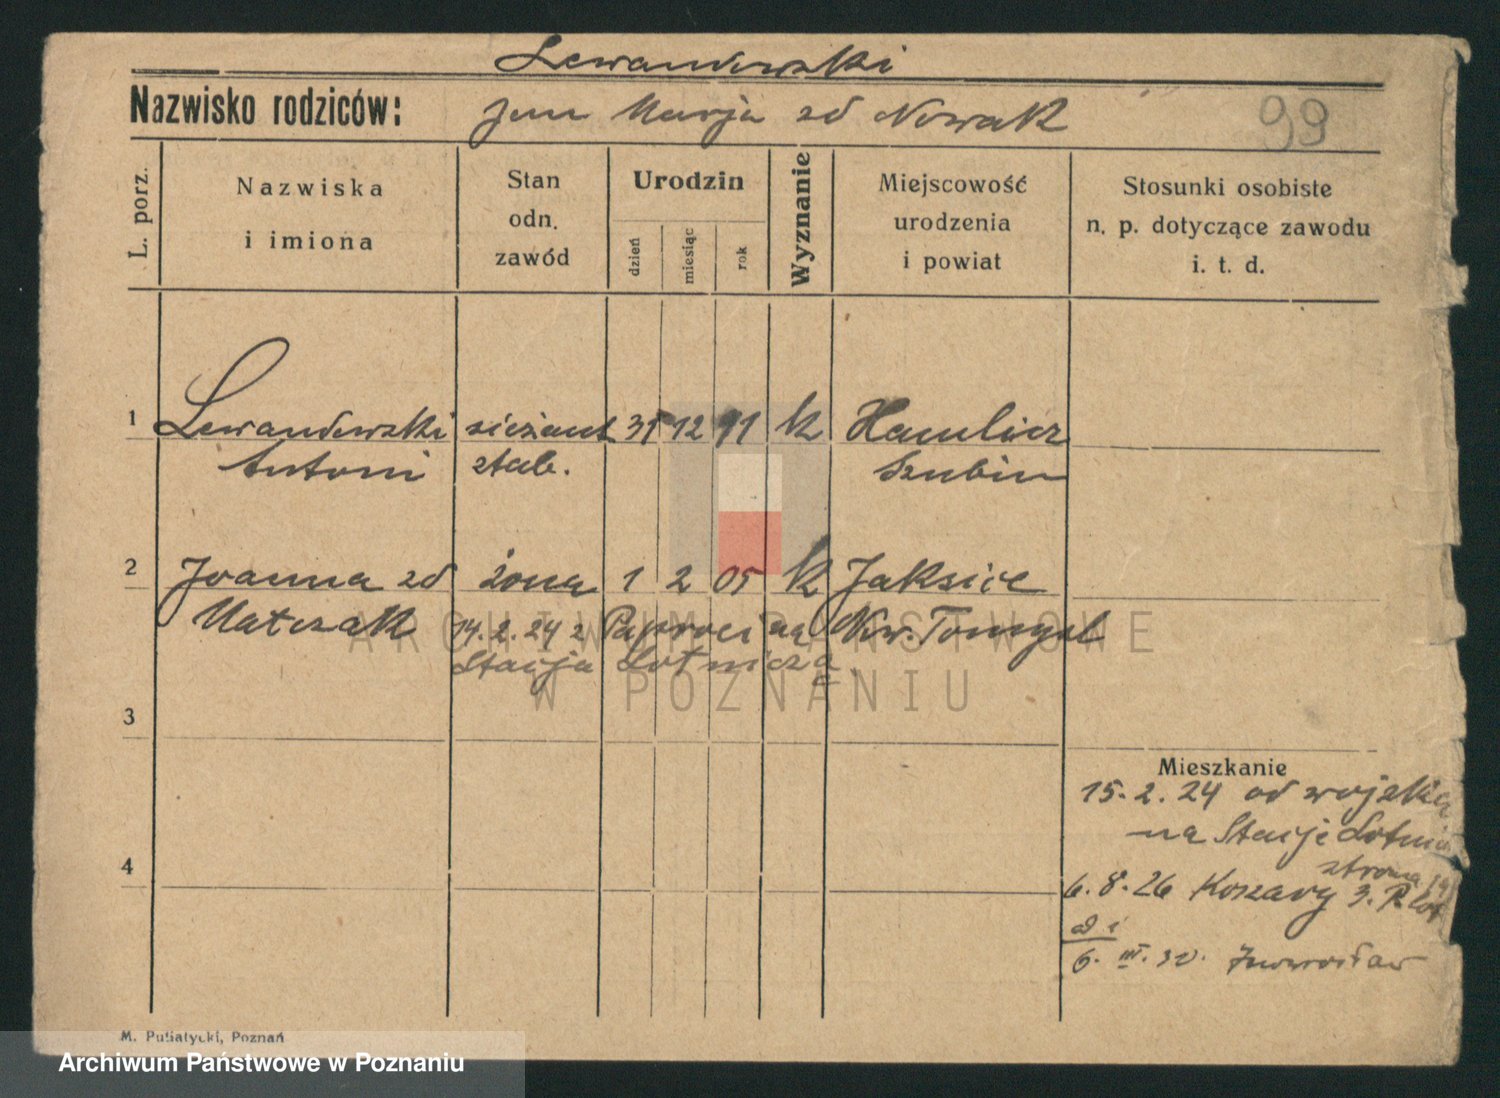 Lewandowski
Nazwisko rodziców: Jan Marja zd Nowak 99
L. porz. Nazwiska i imiona Stan odn. zawód Urodzin dzień miesiąc rok Wyznanie Miejscowość urodzenia i powiat Stosunki osobiste n. p. dotyczące zawodu i. t. d.
1 Lewandowski sierżant 31 12 91 k
Antoni sztab. Szubin
2 Joanna zd żona 1 2 05 k Jaksice
Matczak 14.2.24 z Paproci na Now. Tomysl
Stacja Lotnicza
3
Mieszkanie
15.2.24 od wojska
na Stacje Lotnic
strona
4
6.8.26 Koszary 3. P. Lot
ad i
6. III. 30. Inowrocław
M. Putiatycki, Poznań
ARCHIWUM PAŃSTWOWE
W POZNANIU
Archiwum Państwowe w Poznaniu